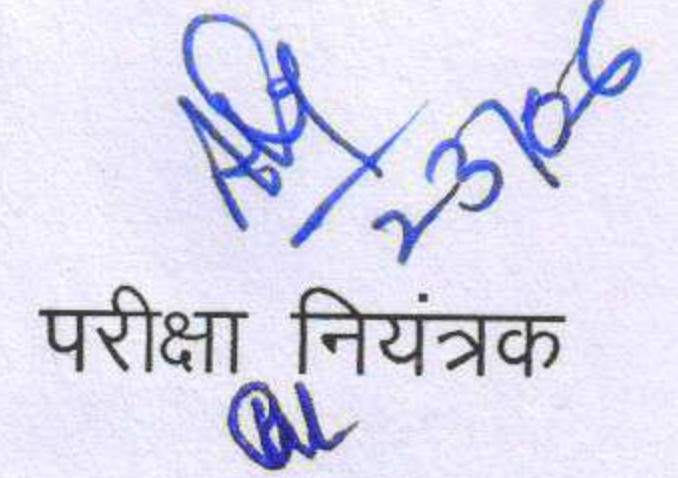 23/06
परीक्षा नियंत्रक